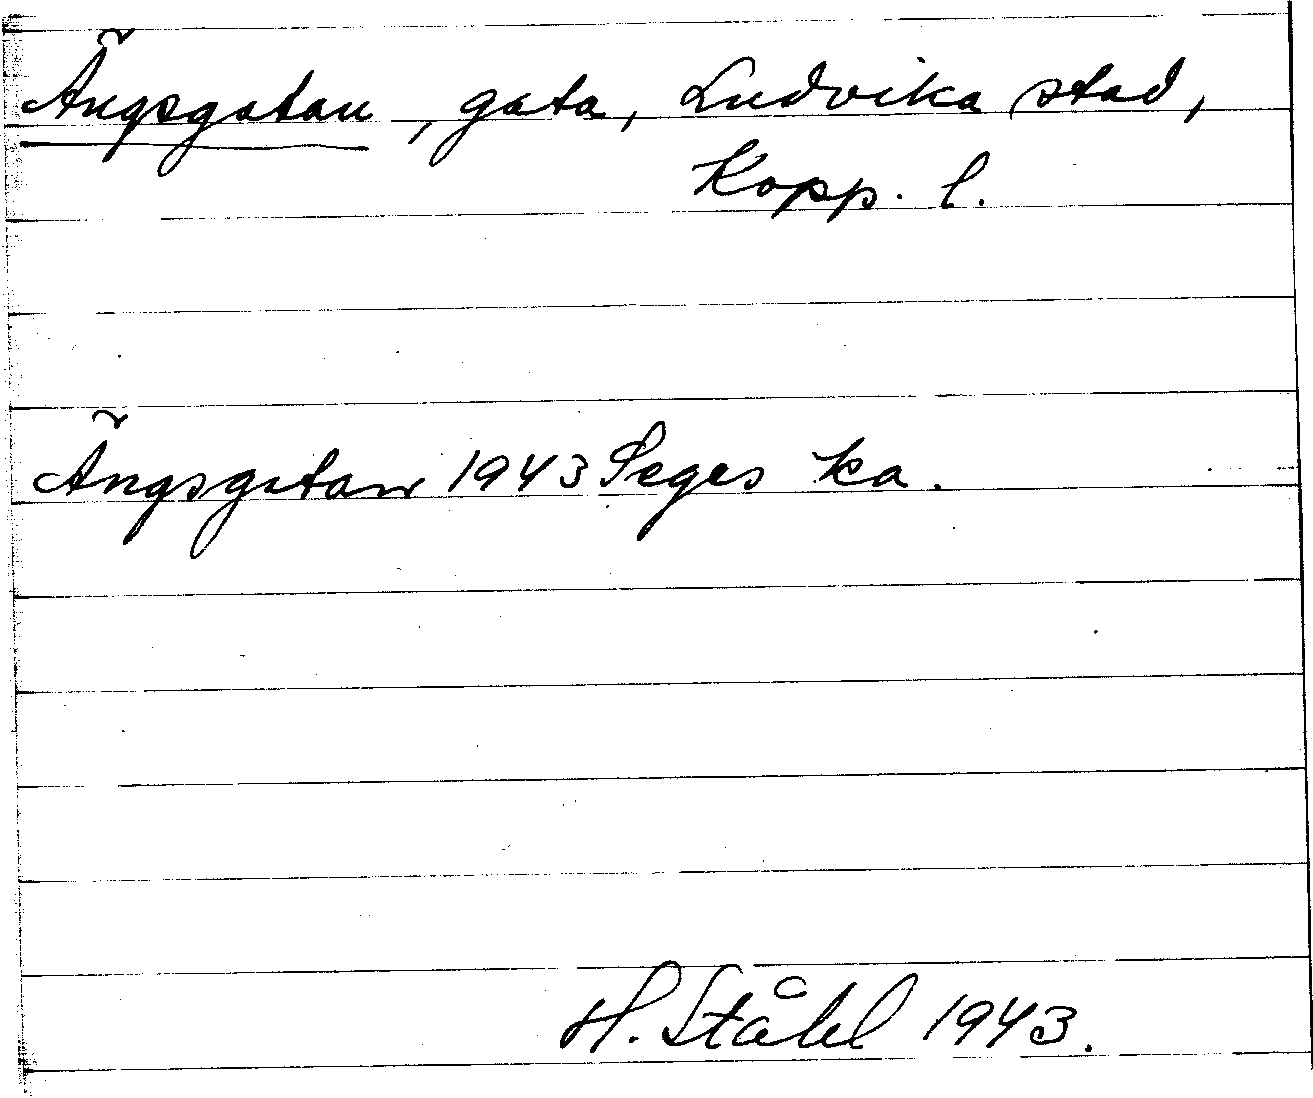 Ängsgatan, gata, Ludvika stad,
Kopp. l.
Ängsgatan 1943 Seges ka.
H. Ståhl 1943.